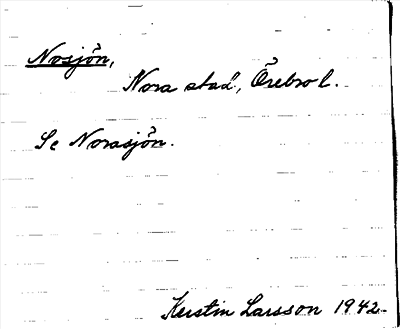 Nosjön,
Nora stad, Örebro l.
Se Norasjön.
Kerstin Larsson 1942